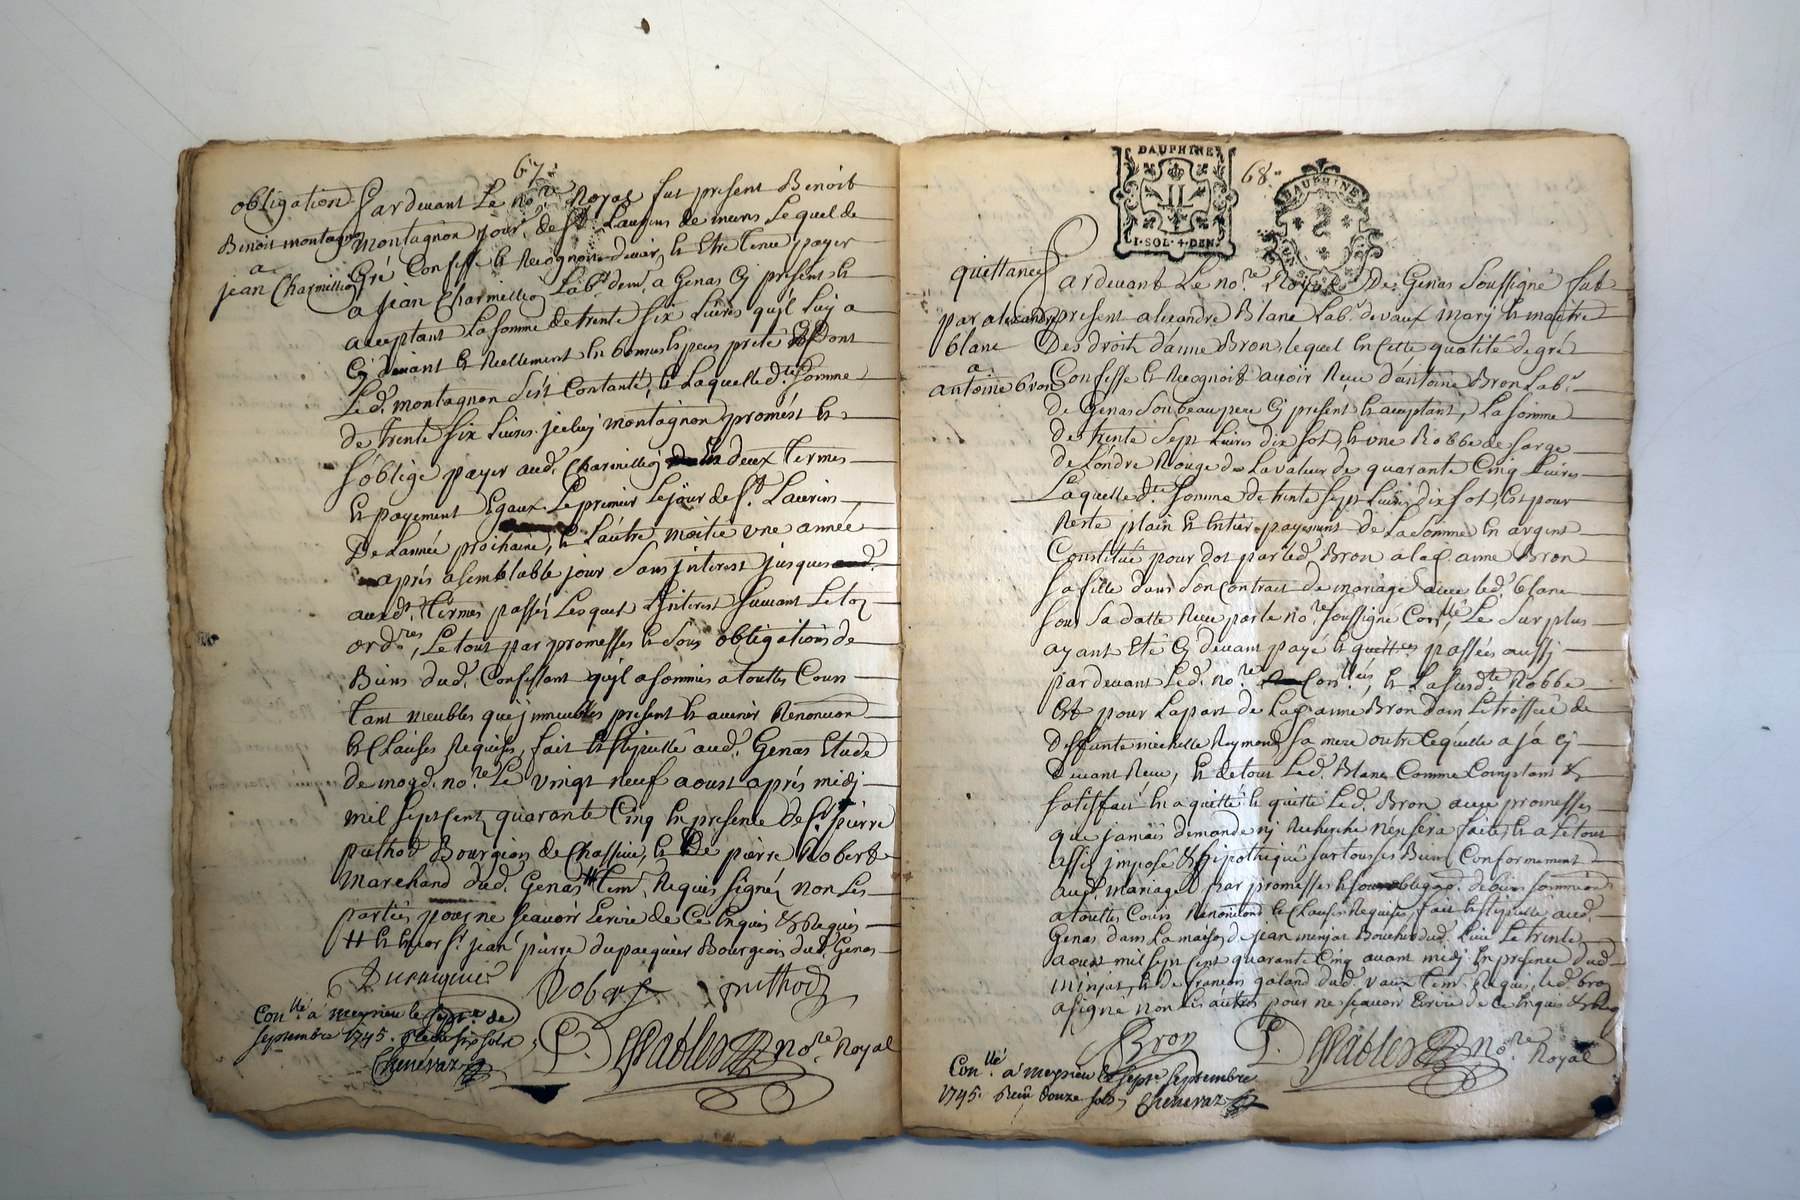 67.
obligation
Benoit montagnon
a
jean Charmillion
Pardevant Le no.re Royal fut présent Benoit
montagnon jour. de st. Laurins de murs Lequel de
Gré Confesse et Recognoit devoir, et Etre tenu payer
a jean Charmillion Lab.r dem.t a Genas Cy présent et
acceptant La somme de trente six Livres qu'il luy a
Cy devant et Reellement En bonnes Especes prete Et Dont
Led. montagnon s'est Contanté, et Laquelle d.te somme
de trente six Livres jcelluj montagnon promést et
s'oblige payer aud. Charmillion En deux termes
et payement Egaux Le premier Le jour de st. Laurins
De L'année prochaine, et L'autre moitie une année
aprés a semblable jour Sans jnterest jusques
auxd.ts termes passés Lesquels Suivant Le
ord.res, Le tout par promesses et Sous obligations de
Biens dud. Confessant qujl a soumis a toutes Cours
tant meubles que jmmeubles présent et avenir Renoncon
et Clauses Requises, fait et stipullé aud. Genas Etude
de moyd. no.re Le vingt neuf aoust aprés midj
mil sept Cent quarante Cinq En présence de st. pierre
puthod Bourgeois de Chassieu, et De pierre Robert
marchand dud. Genas # tem. Requis signés non Les
parties pour ne scavoir Ecrire de Ce Enquis Et Requis
# et Encor sr. jean pierre dupacquier Bourgeois dud. Genas
Dupacquier Robert puthod
P. no.re Royal
Con.llé a meyzieu le sept.e de
septembre 1745. Reçu six sols
Chenevaz
DAUPHINE
II
1·SOL·4·DEN.
68.
DAUPHINE
quittance
par alexandre
blanc
a
antoine bron
Pardevant Le no.re Royal De Genas Soussigné fut
present alexandre Blanc Lab.r de vaux mary et maitre
Des droits d'anne Bron, lequel En Cette qualité de gré
Confesse et Recognoit avoir Receu d'antoine Bron Lab.r
de Genas son beaupere Cy présent et acceptant, La somme
de trente sept Livres dix sols, et une Robbe de sarge
de Londre Rouge de La valeur de quarante Cinq Livres
Laquelle d.te somme de trente sept Livres dix sols, Est pour
Reste plain et Entier payement de La somme En argent
Constitué pour dot par led. Bron a lad. anne Bron
sa fille dans son Contrat de mariage avec led. blanc
sous sa datte Receu par le no.re soussigné Con.llé, Le surplus
ayant Eté Cy devant payé et quittances passées aussj
pardevant Led. no.re Con.llés, et La susd.te Robbe
Est pour La part de Lad. anne Bron dans Le troussée de
deffunte michelle Reymond sa mere outre Ce qu'elle a ja Cy
Devant Receu, et de tout Led. Blanc Comme Comptant Et
satisfait En a quitté et quitte Led. Bron avec promesses
que jamais demande nj Recherche n'en sera faite, et a Le tout
assis imposé Et hipothéqué sur tous ses Biens Conformement
aud. mariage par promesses et sous obligaõn. de biens soumission
a toutes Cours Renonciaõns et Clauses Requises, fait et stipullé aud.
Genas dans La maison de jean minjat Boucher dud. Lieu Le trente
aoust mil sept Cent quarante Cinq avant midj En présence dud.
minjat, et de francois galand dud. vaux tem. Requis, led. bron
a signé non Les autres pour ne scavoir Ecrire de Ce Enquis Et Req
Bron P. no.re Royal
Con.llé a meyzieu le sept.e septembre
1745. Reçu douze sols Chenevaz